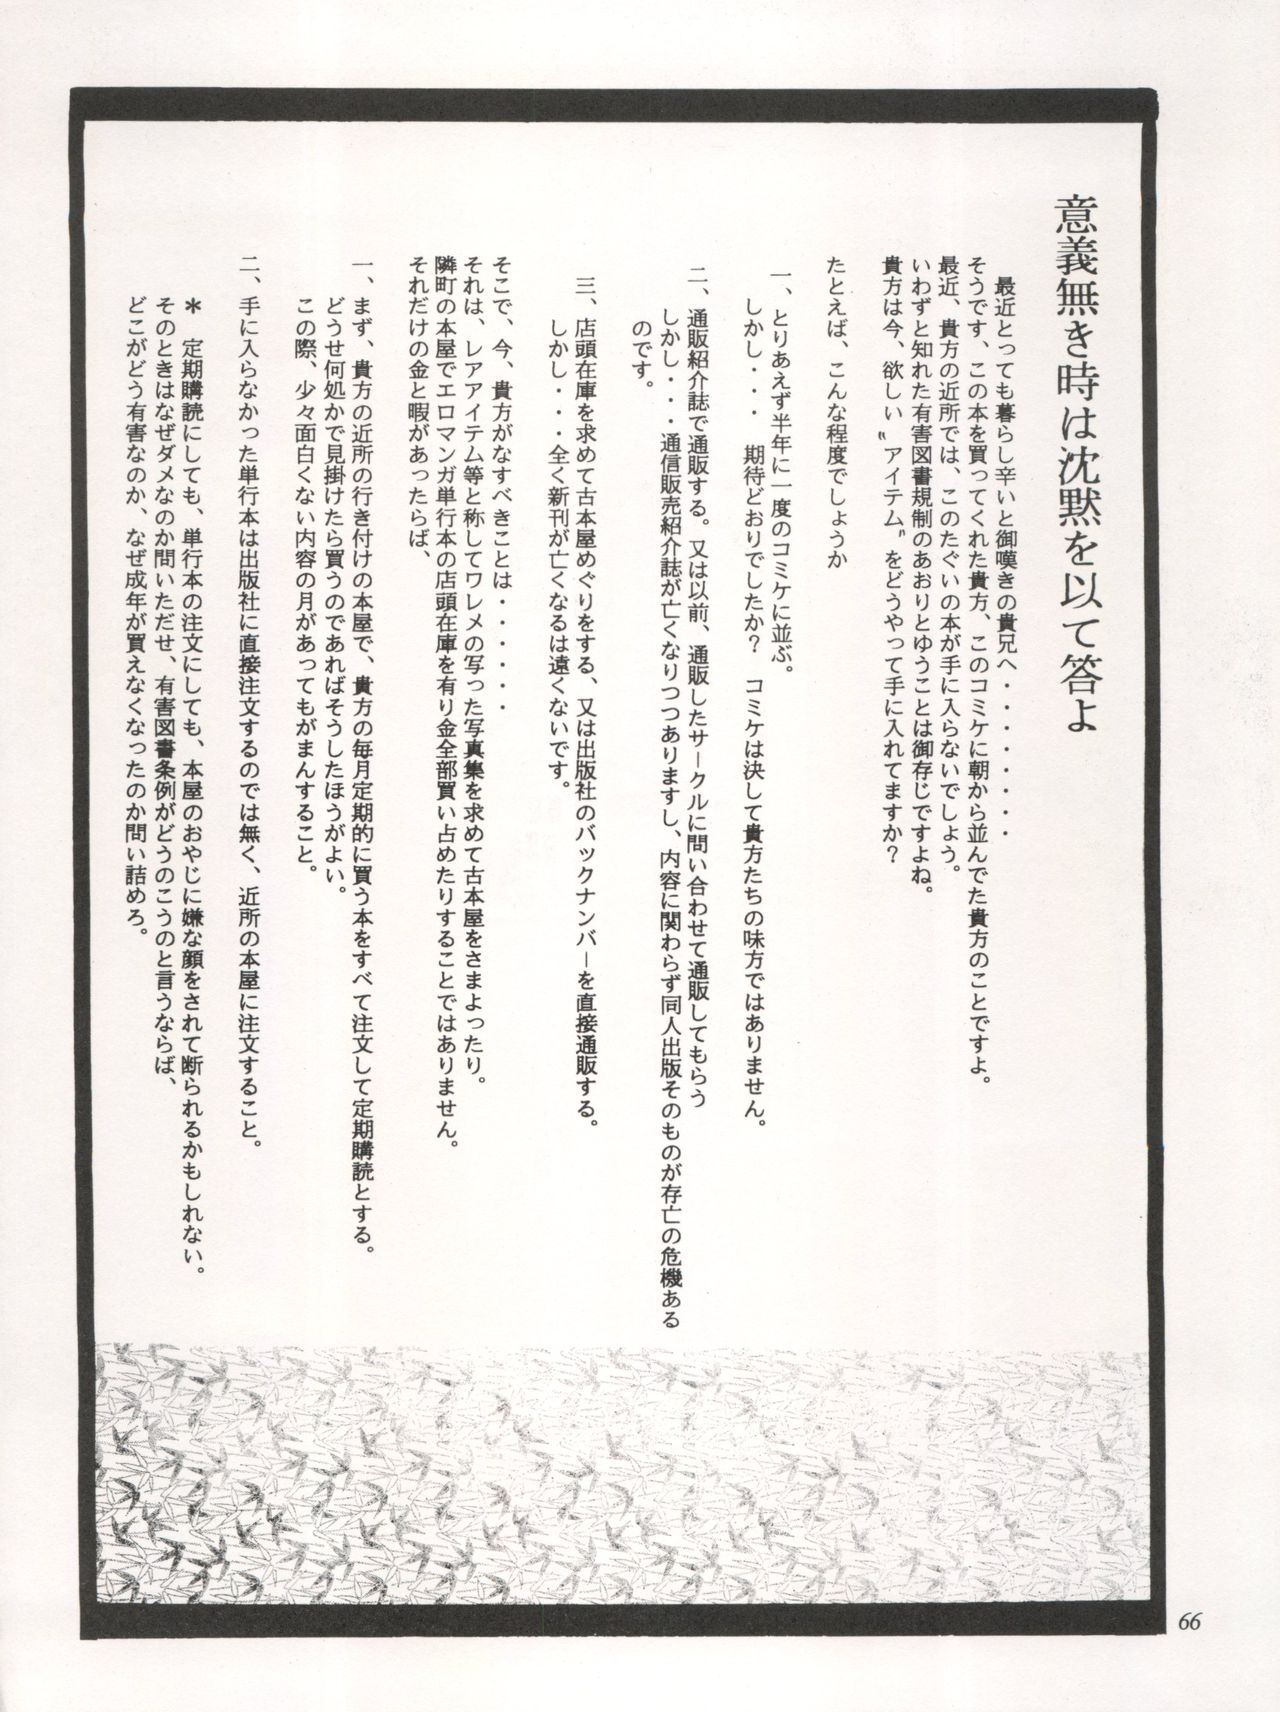 意義無き時は沈黙を以て答よ
最近とっても暮らし辛いと御嘆きの貴兄へ・・・・・・・・
そうです、この本を買ってくれた貴方、このコミケに朝から並んでた貴方のことですよ。
最近、貴方の近所では、このたぐいの本が手に入らないでしょう。
いわずと知れた有害図書規制のあおりとゆうことは御存じですよね。
貴方は今、欲しい〝アイテム〟をどうやって手に入れてますか？
たとえば、こんな程度でしょうか
一、とりあえず半年に一度のコミケに並ぶ。
しかし・・・　期待どおりでしたか？　コミケは決して貴方たちの味方ではありません。
二、通販紹介誌で通販する。又は以前、通販したサークルに問い合わせて通販してもらう
しかし・・・通信販売紹介誌が亡くなりつつありますし、内容に関わらず同人出版そのものが存亡の危機ある
のです。
三、店頭在庫を求めて古本屋めぐりをする、又は出版社のバックナンバーを直接通販する。
しかし・・・全く新刊が亡くなるは遠くないです。
そこで、今、貴方がなすべきことは・・・・・・
それは、レアアイテム等と称してワレメの写った写真集を求めて古本屋をさまよったり。
隣町の本屋でエロマンガ単行本の店頭在庫を有り金全部買い占めたりすることではありません。
それだけの金と暇があったらば、
一、まず、貴方の近所の行き付けの本屋で、貴方の毎月定期的に買う本をすべて注文して定期購読とする。
どうせ何処かで見掛けたら買うのであればそうしたほうがよい。
この際、少々面白くない内容の月があってもがまんすること。
二、手に入らなかった単行本は出版社に直接注文するのでは無く、近所の本屋に注文すること。
＊　定期購読にしても、単行本の注文にしても、本屋のおやじに嫌な顔をされて断られるかもしれない。
そのときはなぜダメなのか問いただせ、有害図書条例がどうのこうのと言うならば、
どこがどう有害なのか、なぜ成年が買えなくなったのか問い詰めろ。
66